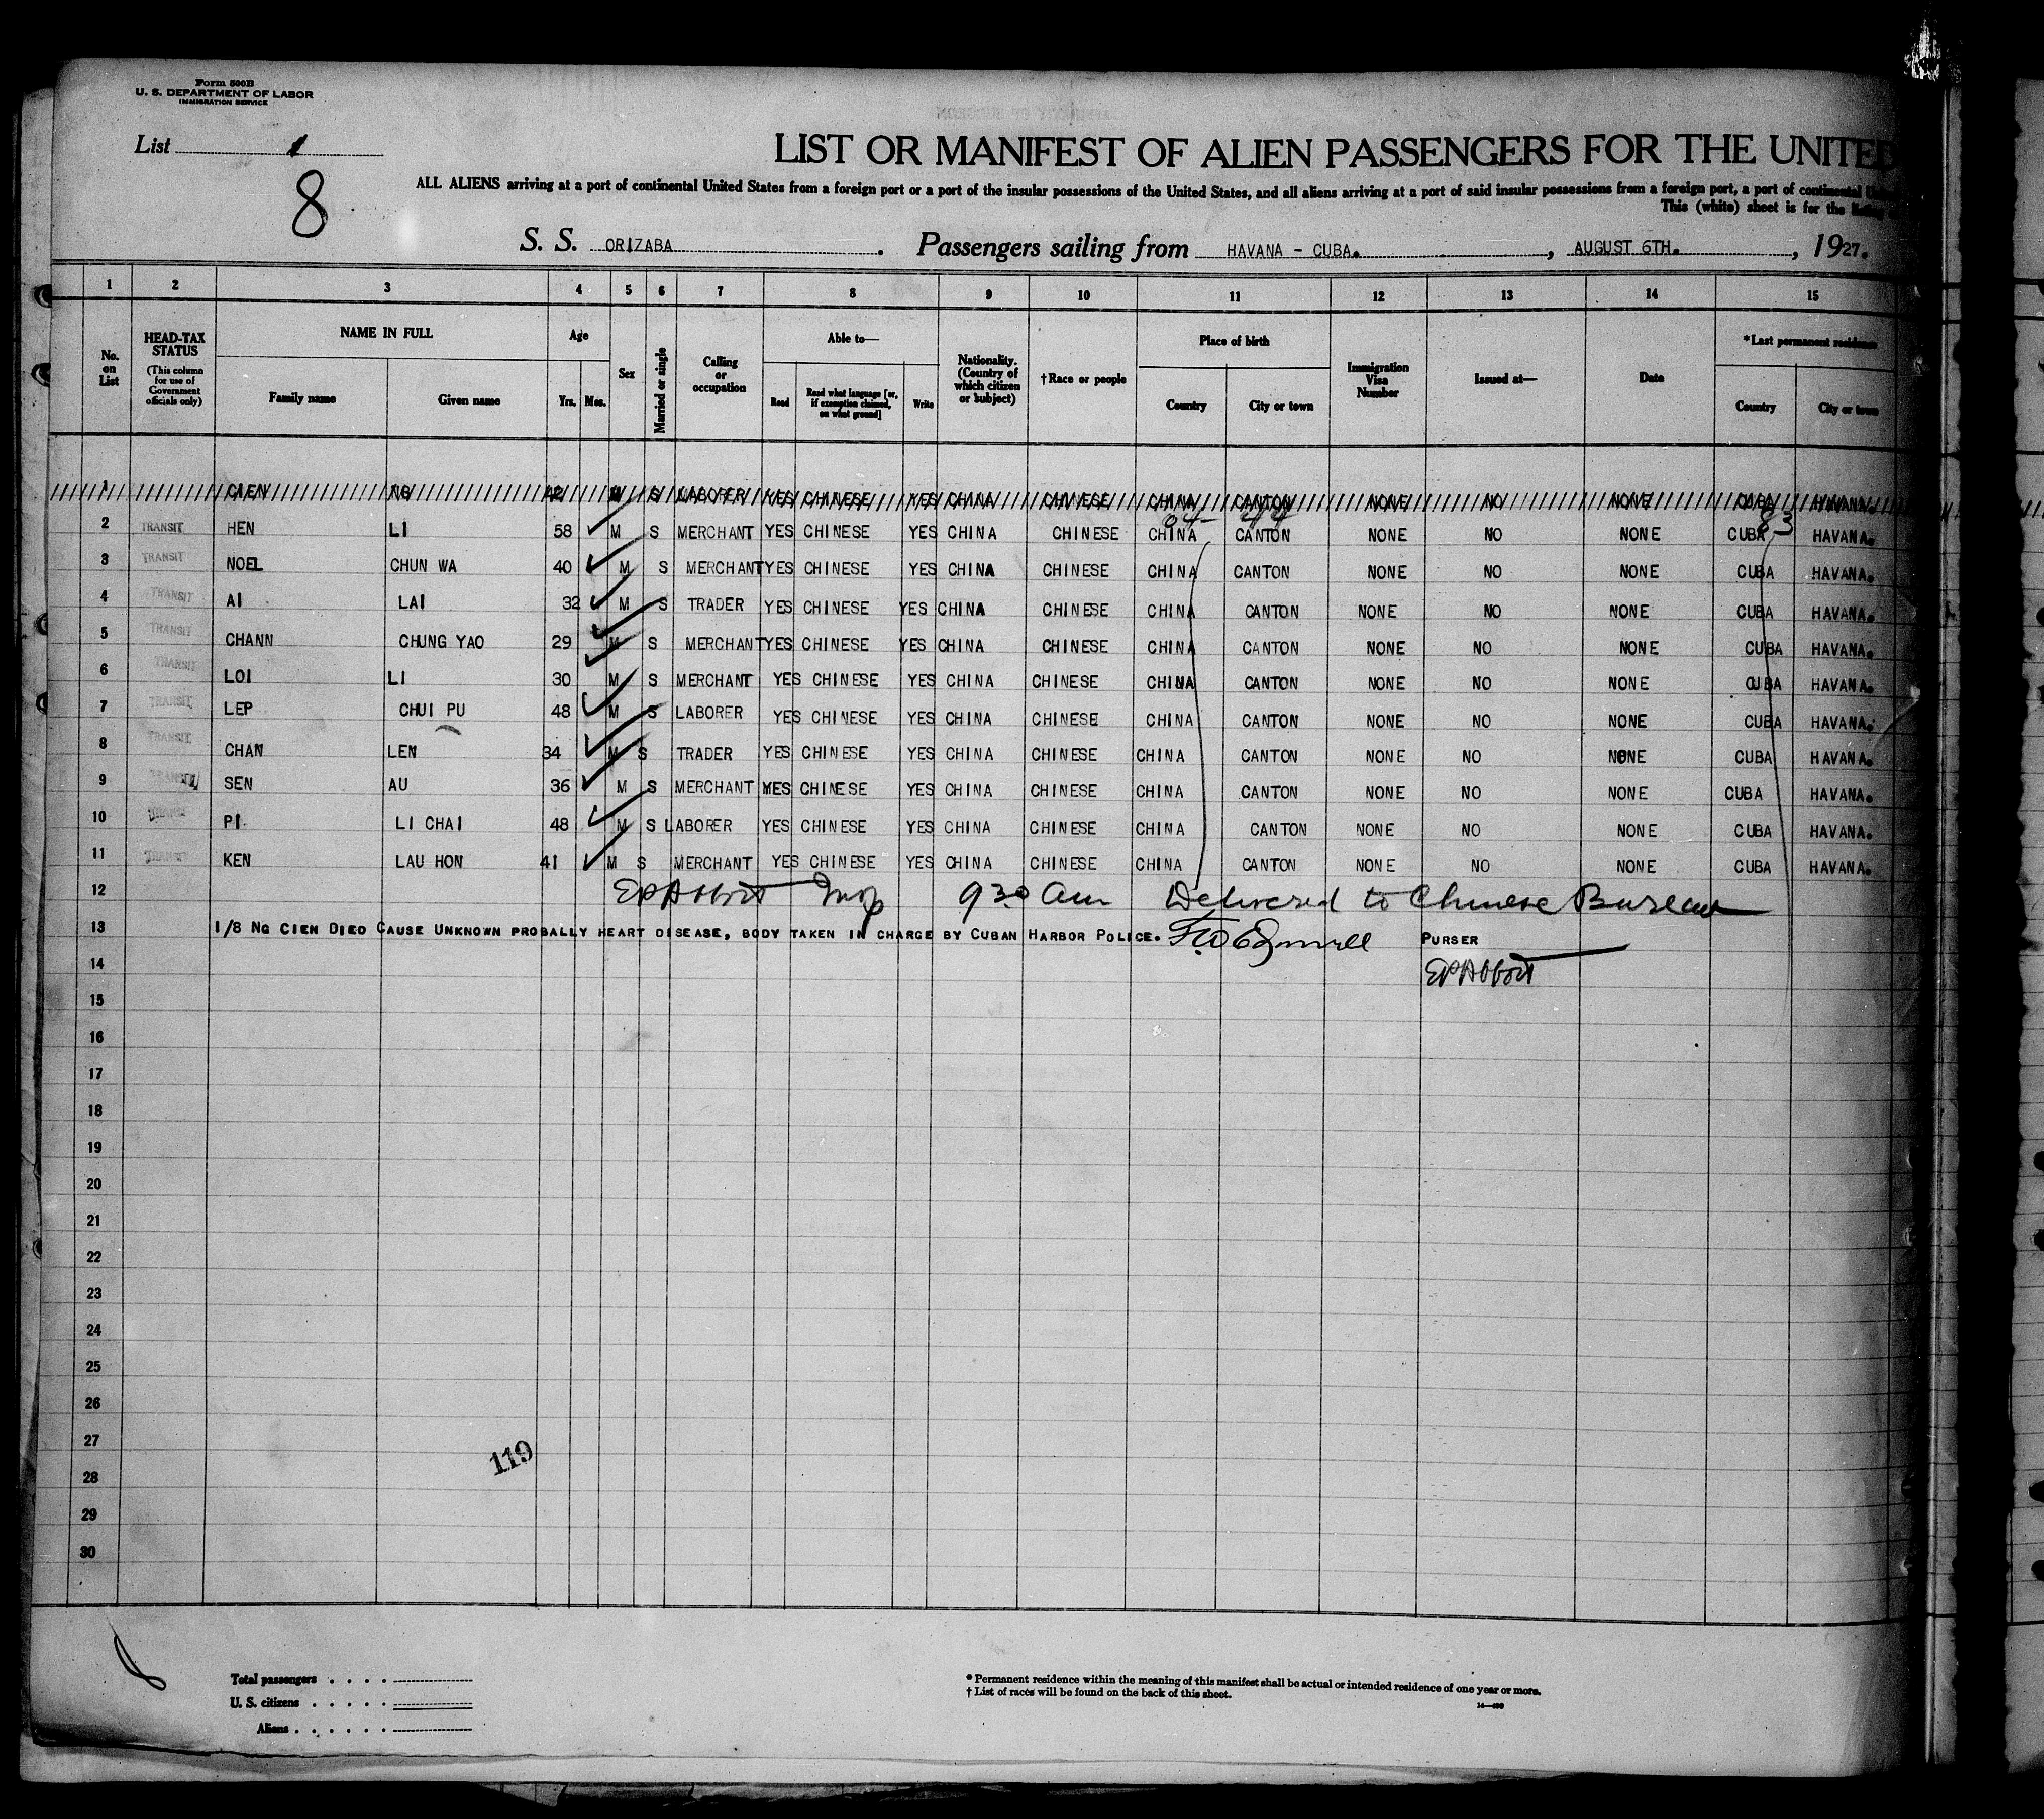 Form 500B
U. S. DEPARTMENT OF LABOR
IMMIGRATION SERVICE
List 1
8
LIST OR MANIFEST OF ALIEN PASSENGERS FOR THE UNITED
ALL ALIENS arriving at a port of continental United States from a foreign port or a port of the insular possessions of the United States, and all aliens arriving at a port of said insular possessions from a foreign port, a port of continental
This (white) sheet is for the listing
S. S. ORIZABA. Passengers sailing from HAVANA - CUBA. , AUGUST 6TH. , 1927.
1 2 3 4 5 6 7 8 9 10 11 12 13 14 15
No. on List
HEAD-TAX STATUS
(This column for use of Government officials only)
NAME IN FULL
Family name Given name
Age
Yrs. Mos.
Sex
Married or single
Calling or occupation
Able to—
Read Read what language [or, if exemption claimed, on what ground] Write
Nationality. (Country of which citizen or subject)
†Race or people
Place of birth
Country City or town
Immigration Visa Number
Issued at—
Date
*Last permanent residence
Country City or town
1 CIEN NG 42 M S LABORER YES CHINESE YES CHINA CHINESE CHINA CANTON NONE NO NONE CUBA HAVANA.
2 TRANSIT HEN LI 58 M S MERCHANT YES CHINESE YES CHINA CHINESE CHINA CANTON NONE NO NONE CUBA HAVANA.
3 TRANSIT NOEL CHUN WA 40 M S MERCHANT YES CHINESE YES CHINA CHINESE CHINA CANTON NONE NO NONE CUBA HAVANA.
4 TRANSIT AI LAI 32 M S TRADER YES CHINESE YES CHINA CHINESE CHINA CANTON NONE NO NONE CUBA HAVANA.
5 TRANSIT CHANN CHUNG YAO 29 M S MERCHANT YES CHINESE YES CHINA CHINESE CHINA CANTON NONE NO NONE CUBA HAVANA.
6 TRANSIT LOI LI 30 M S MERCHANT YES CHINESE YES CHINA CHINESE CHINA CANTON NONE NO NONE CUBA HAVANA.
7 TRANSIT LEP CHUI PU 48 M S LABORER YES CHINESE YES CHINA CHINESE CHINA CANTON NONE NO NONE CUBA HAVANA.
8 TRANSIT CHAN LEN 34 M S TRADER YES CHINESE YES CHINA CHINESE CHINA CANTON NONE NO NONE CUBA HAVANA.
9 TRANSIT SEN AU 36 M S MERCHANT YES CHINESE YES CHINA CHINESE CHINA CANTON NONE NO NONE CUBA HAVANA.
10 TRANSIT PI. LI CHAI 48 M S LABORER YES CHINESE YES CHINA CHINESE CHINA CANTON NONE NO NONE CUBA HAVANA.
11 TRANSIT KEN LAU HON 41 M S MERCHANT YES CHINESE YES CHINA CHINESE CHINA CANTON NONE NO NONE CUBA HAVANA.
12 EP Abbott Insp 9 30 Am Delivered to Chinese Bureau
13 1/8 NG CIEN DIED CAUSE UNKNOWN PROBALLY HEART DISEASE, BODY TAKEN IN CHARGE BY CUBAN HARBOR POLICE. PURSER
14 EP Abbott
15
16
17
18
19
20
21
22
23
24
25
26
27
119
28
29
30
Total passengers . . . .
U. S. citizens . . . . .
Aliens . . . . . .
* Permanent residence within the meaning of this manifest shall be actual or intended residence of one year or more.
† List of races will be found on the back of this sheet.